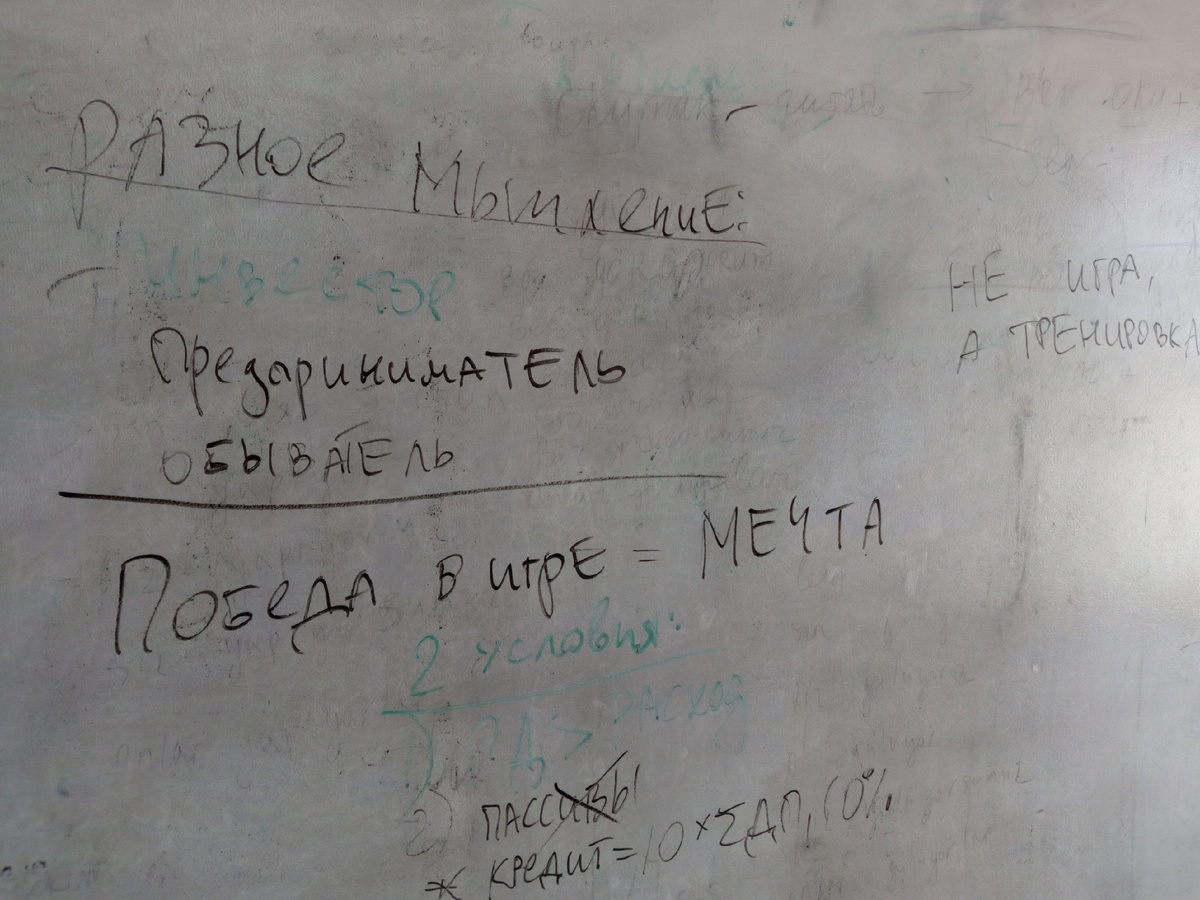 РАЗНОЕ МЫШЛЕНИЕ:
ИНВЕСТОР
ПредприниматЕЛЬ
ОБЫВАТЕЛЬ
НЕ ИГРА,
А ТРЕНИРОВКА
ПОБЕДА В ИГРЕ = МЕЧТА
2 условия:
1) ПД > РАСХОД
2) ПАССИВЫ
* КРЕДИТ = 10 × ΣДП, 10%